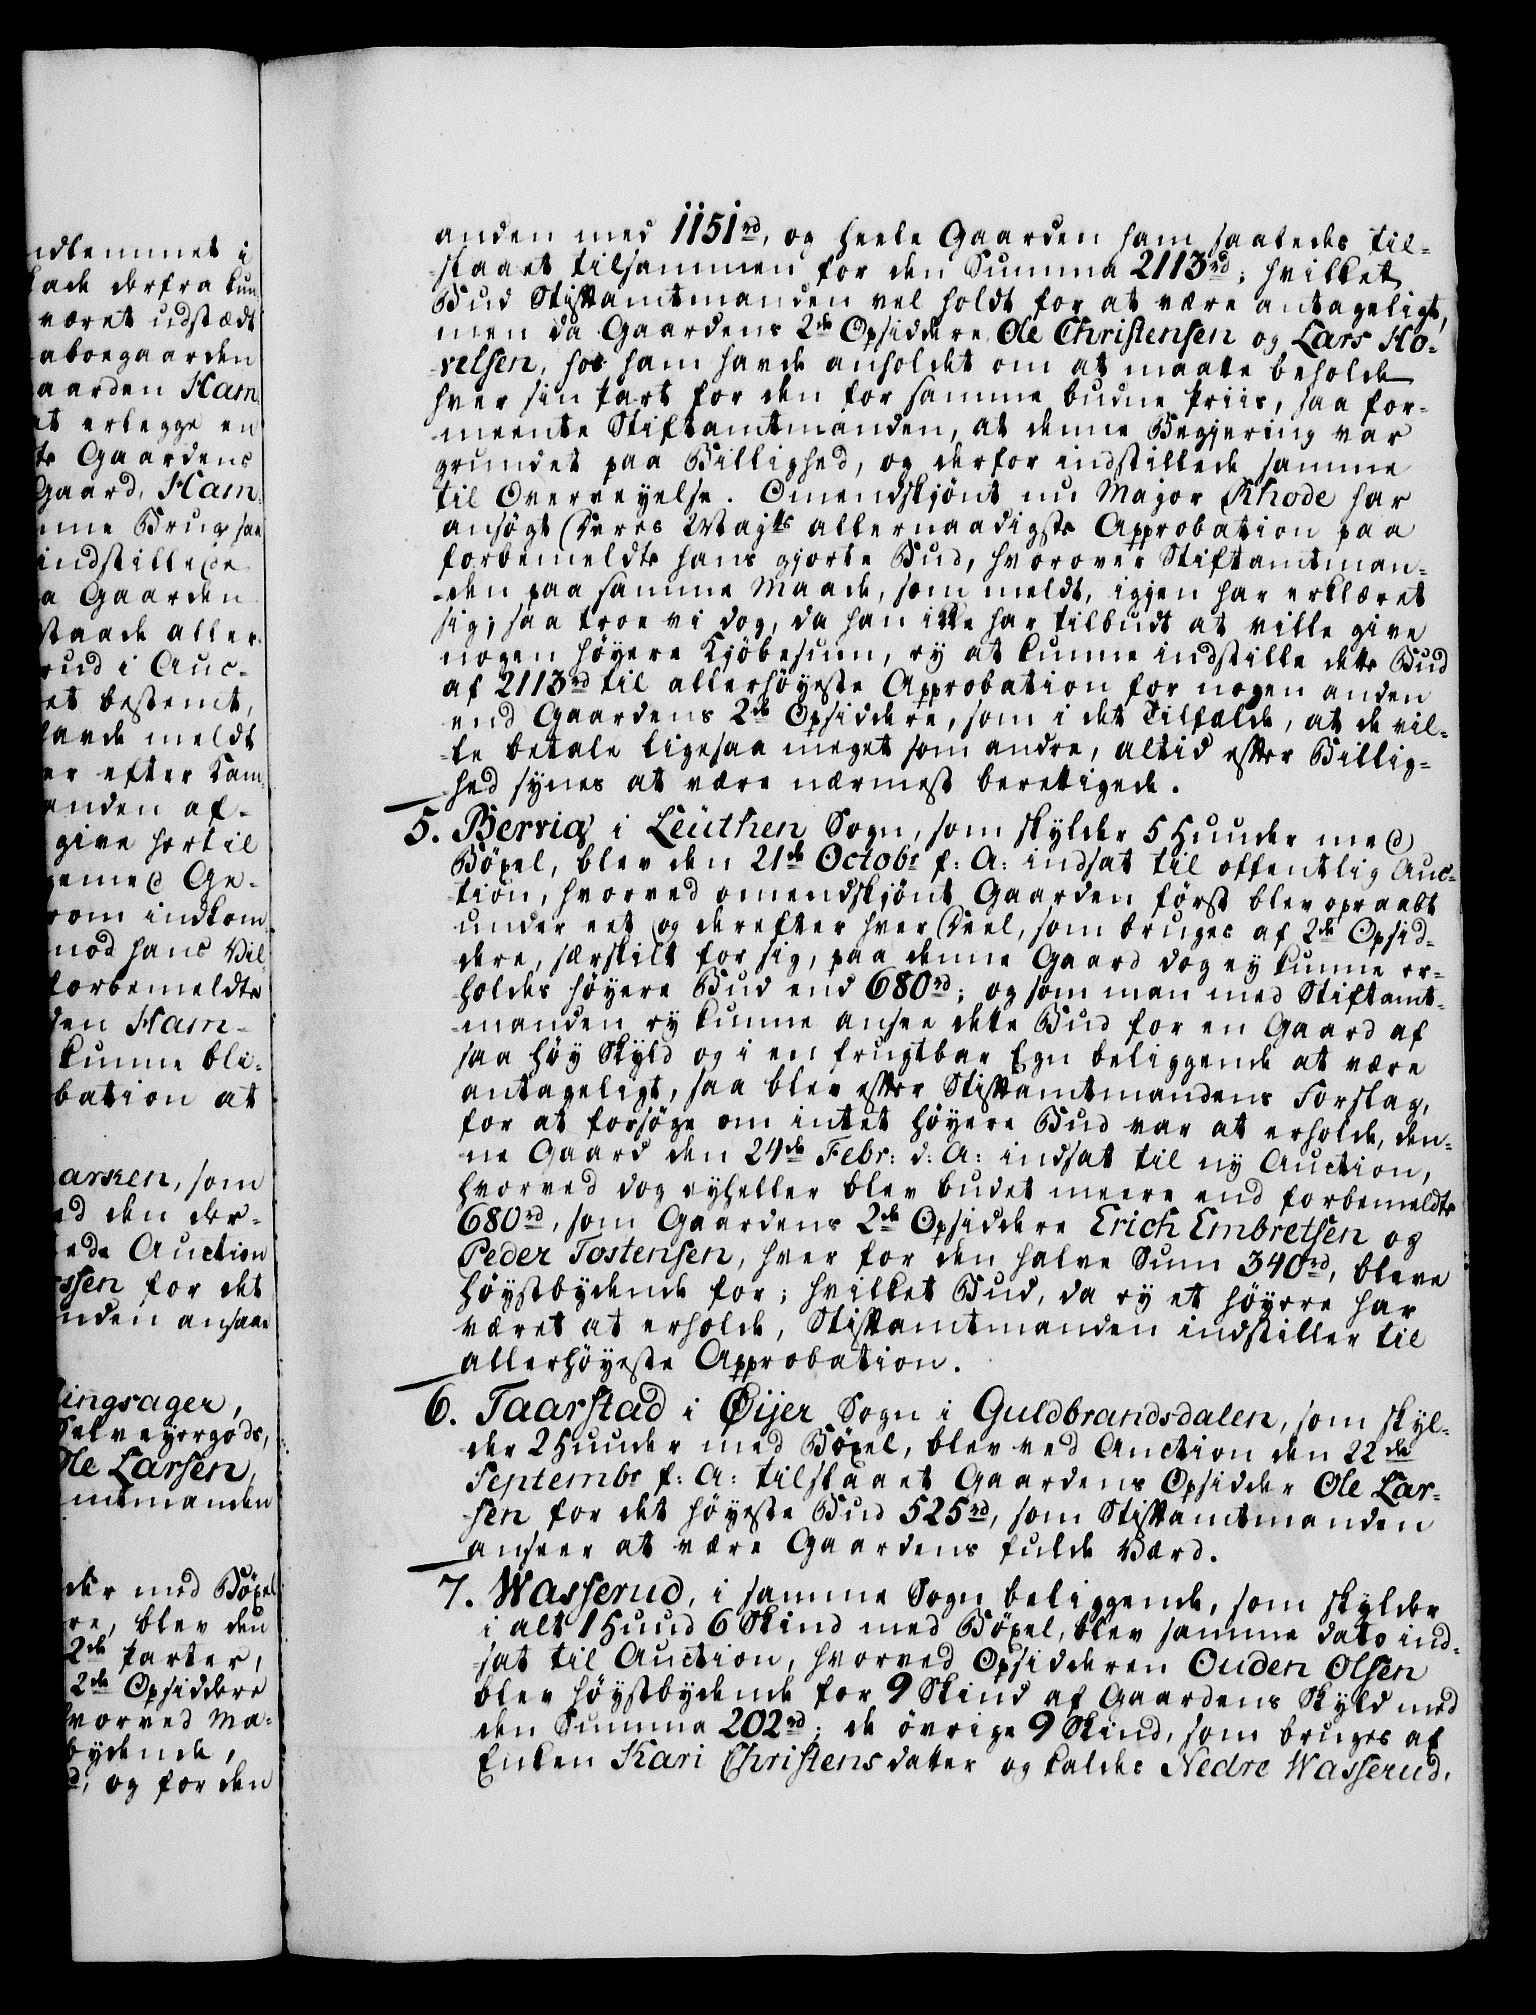 ndkommet i
kade derfra kun
været udstædt
aboegaarden
aarden Ham
et erlegge en
te Gaardens
Gaard, Ham
nne Brug saa
indstillede
a Gaarden
staade aller-
rud i Auc-
et bestemt,
havde meldt
er efter Kam
anden af-
give hertil
gemed Ge-
som indkom
mod hans Vil
forbemeldte
den Ham-
kunne bli-
bation at
arsen, som
ed den der-
ede Auction
ssen for det
nden ansaae
lingsager,
Selveyergods,
Ole Larsen,
mtmanden
der med Böxel
re, blev den
2de Parter,
2de Opsiddere
hvorved Ma-
bydende,
d, og for den
anden med 1151rd, og heele Gaarden ham saaledes til-
slaaet tilsammen for den Summa 2113rd; hvilket
Bud Stiftamtmanden vel holdt for at være antageligt,
men da Gaardens 2de Opsiddere Ole Christensen og Lars Ho-
velsen, hos ham havde anholdet om at maatte beholde
hver sin Part for den for samme budne Priis, saa for-
meente Stiftamtmanden, at denne Begjering var
grundet paa Billighed, og derfor indstillede samme
til Overveyelse. Omendskjönt nu Major Rhode har
ansögt Deres Majts allernaadigste Approbation paa
forbemeldte hans gjorte Bud, hvorover Stiftamtman-
den paa samme Maade, som meldt, igjen har erklæret
sig; saa troe vi dog, da han ikke har tilbudt at ville give
nogen höyere Kjöbesum, ey at kunne indstille dette Bud
af 2113rd til allerhöyeste Approbation for nogen anden
end Gaardens 2de Opsiddere, som i det Tilfælde, at de vil-
le betale ligesaa meget som andre, altid efter Billig-
hed synes at være nærmest berettigede.
5. Berrig i Leuthen Sogn, som skylder 5 Huuder med
Böxel, blev den 21de Octobr f: A: indsat til offentlig Auc-
tion, hvorved omendskjönt Gaarden först blev opraabt
under eet og derefter hver Deel, som bruges af 2de Opsid-
dere, særskilt for sig, paa denne Gaard dog ey kunne er-
holdes höyere Bud end 680rd; og som man med Stiftamt-
manden ey kunne ansee dette Bud for en Gaard af
saa höy Skyld og i en frugtbar Egn beliggende at være
antageligt, saa blev efter Stiftamtmandens Forslag,
for at forsöge om intet höyere Bud var at erholde, den-
ne Gaard den 24de Febr: d: A: indsat til ny Auction,
hvorved dog eyheller blev budet meere end forbemeldte
680rd, som Gaardens 2de Opsiddere Erich Embretsen og
Peder Tostensen, hver for den halve Sum 340rd, bleve
höystbydende for; hvilket Bud, da ey et höyere har
været at erholde, Stiftamtmanden indstiller til
allerhöyeste Approbation.
6. Taarstad i Øijer Sogn i Guldbrandsdalen, som skyl-
der 2 Huuder med Böxel, blev ved Auction den 22de
Septembr f: A: tilslaaet Gaardens Opsidder Ole Lar-
sen for det höyeste Bud 525rd, som Stiftamtmanden
anseer at være Gaardens fulde Værd.
7. Wasserud, i samme Sogn beliggende, som skylder
i alt 1 Huud 6 Skind med Böxel, blev samme dato ind-
sat til Auction, hvorved Opsidderen Ouden Olsen
blev höystbydende for 9 Skind af Gaardens Skyld med
den Summa 202rd; de övrige 9 Skind, som bruges af
Enken Kari Christensdatter og kaldes Nedre Wasserud,